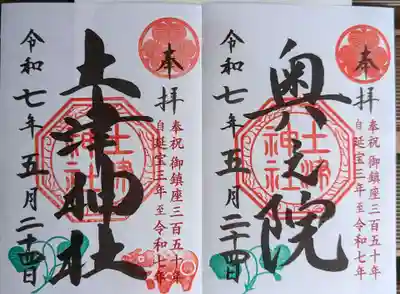 奉拝
奉祝 御鎮座三百五十年
自延宝三年至令和七年
奥之院
土津
神社
令和七年五月二十四日
奉拝
奉祝 御鎮座三百五十年
自延宝三年至令和七年
土津神社
土津
神社
令和七年五月二十四日